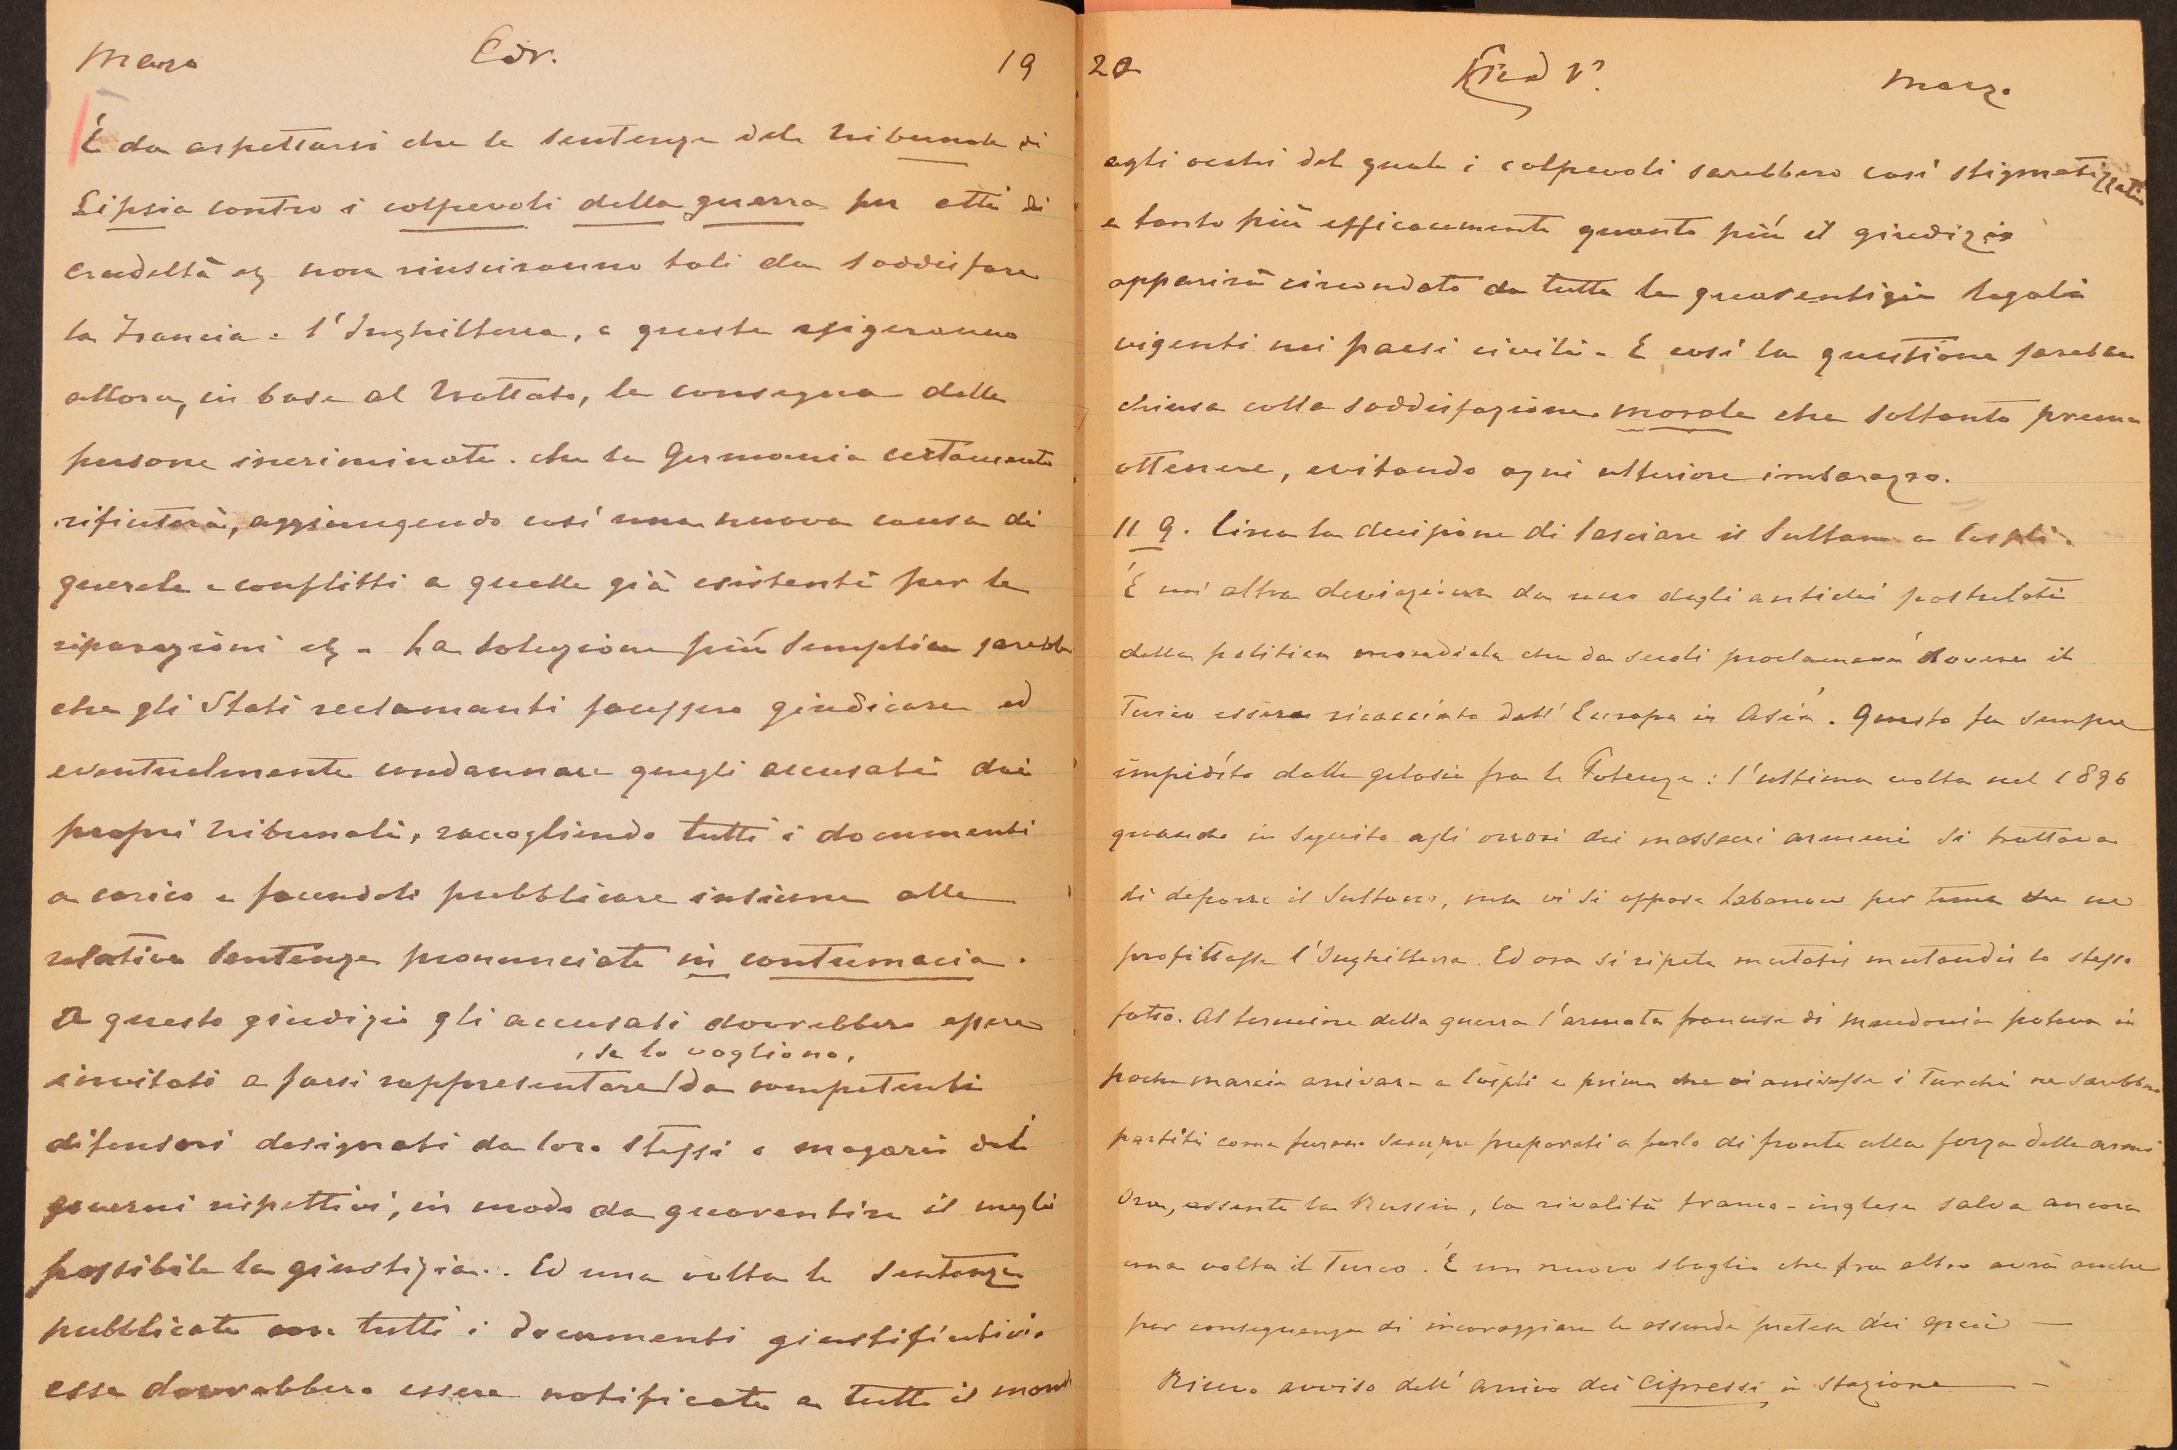 Marzo Edr. 19
È da aspettarsi che le sentenze dele tribunale di
Lipsia contro i colpevoli della guerra per atti di
crudeltà ez non riusciranno tali da soddisfare
la Francia e l'Inghilterra, e queste esigeranno
allora, in base al trattato, la consegna delle
persone incriminate che la Germania certamente
rifiuterà, aggiungendo così una nuova causa di
querele e conflitti a quelle già esistenti per le
riparazioni ez. La soluzione più semplice sarebbe
che gli Stati reclamanti facessero giudicare ed
eventualmente condannare quegli accusati dai
propri tribunali, raccogliendo tutti i documenti
a carico e facendoli pubblicare insieme alle
relative sentenze pronunciate in contumacia.
A questo giudizio gli accusati dovrebbero essere
, se lo vogliono,
invitati a farsi rappresentare da competenti
difensori designati da loro stessi e magari dai
governi rispettivi, in modo da guarentire il meglio
possibile la giustizia. Ed una volta le sentenze
pubblicate con tutti i documenti giustificativi
esse dovrebbero essere notificate a tutto il mondo
20 Marzo
agli occhi del quale i colpevoli sarebbero così stigmatizzati
e tanto più efficacemente quanto più il giudizio
apparirà circondato da tutte le guarentigie legali
vigenti nei paesi civili. E così la questione sarebbe
chiusa colla soddisfazione morale che soltanto preme
ottenere, evitando ogni ulteriore imbarazzo.
11 9. Circa la decisione di lasciare il Sultano a Cospli.
È un'altra deviazione da uno degli antichi postulati
della politica mondiale che da secoli proclamava dovere il
Turco essere ricacciato dall'Europa in Asia. Questo fu sempre
impedito dalle gelosie fra le Potenze: l'ultima volta nel 1896
quando in seguito agli orrori dei massacri armeni si trattava
di deporre il Sultano, ma vi si oppose Lobanow per tema che ne
profittasse l'Inghilterra. Ed ora si ripete mutatis mutandis lo stesso
fatto. Al termine della guerra l'armata francese di Macedonia poteva in
poche marcie arrivare a Cospli e prima che vi arrivasse i Turchi ne sarebbero
partiti come furono sempre preparati a farlo di fronte alla forza delle armi
Ora, assente la Russia, la rivalità franco-inglese salva ancora
una volta il Turco. È un nuovo sbaglio che fra altro avrà anche
per conseguenza di incoraggiare le assurde pretese dei greci —
Ricevo avviso dell'arrivo dei cipressi in stazione —